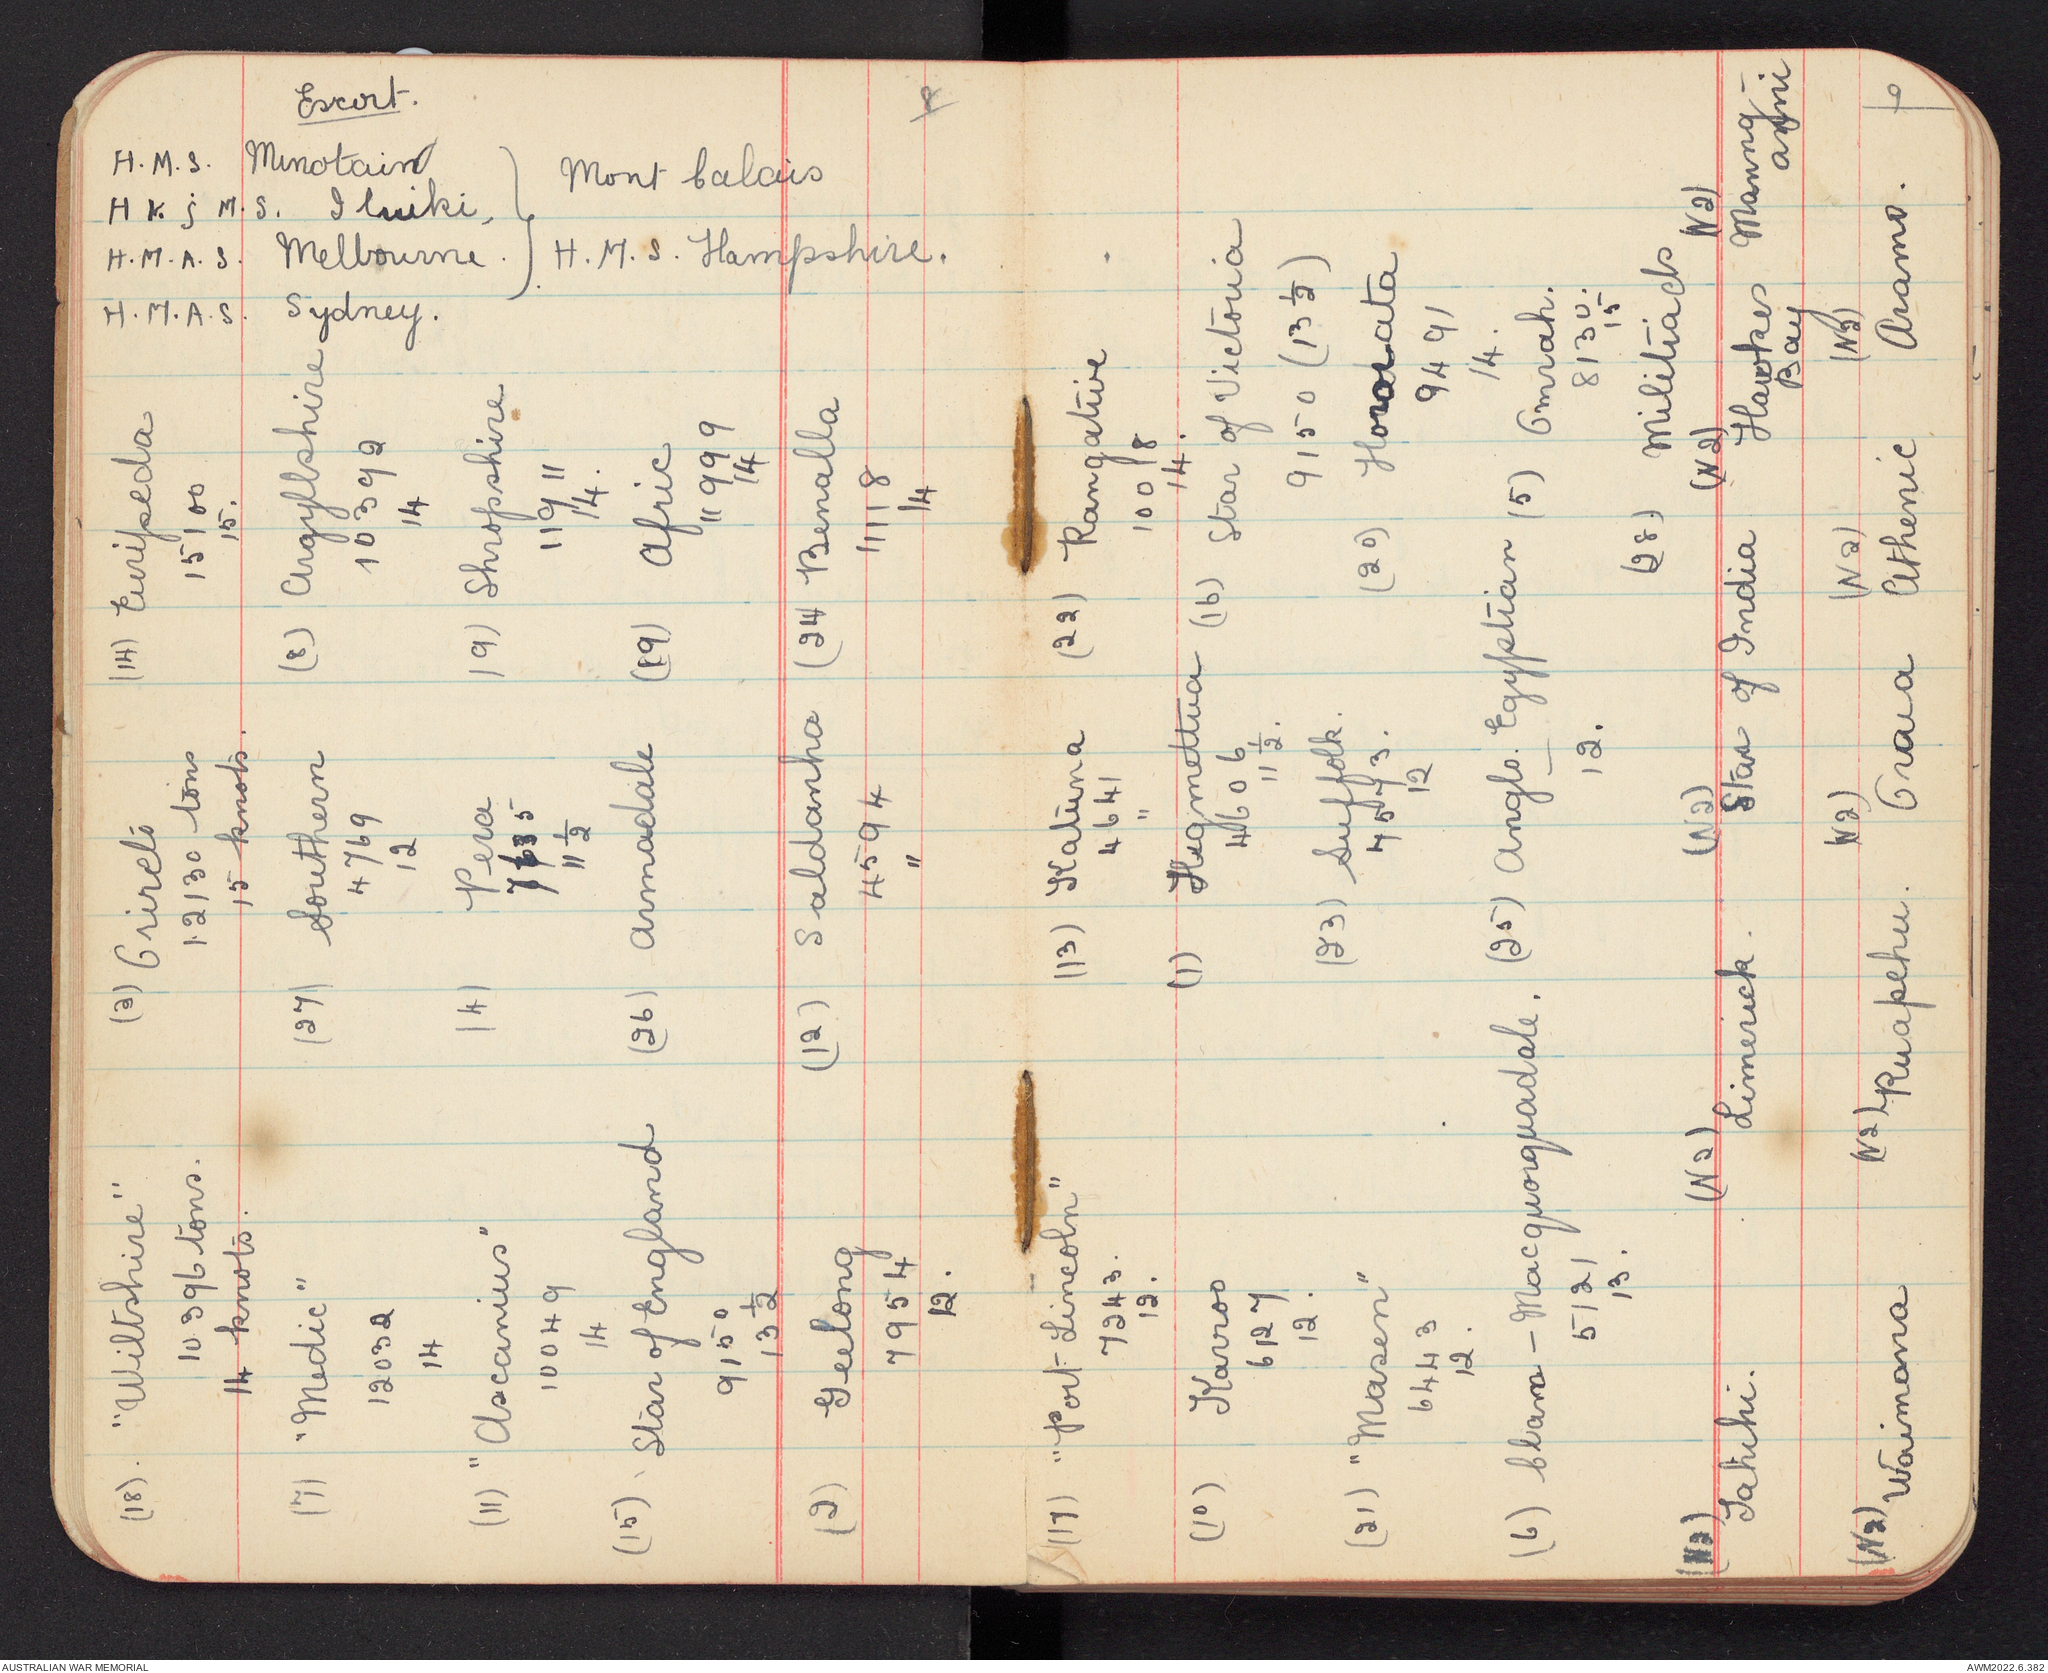 Escort.
H.M.S. Minotain
H K j M.S. Iluiki,
H.M.A.S. Melbourne.
H.M.A.S. Sydney.
Mont Calais
H.M.S. Hampshire.
(18). "Wiltshire"
10396 tons.
14 knots.
(2) Orireto
12130 tons
15 knots.
(14) Euripeda
15100
15.
(7) "Medic"
12032
14
(27) Southern
4769
12
(8) Argyllshire
10392
14
(11) "Ascanius"
10049
14
(4) Pera
7635
11 1/2
(9) Shropshire
11911
14.
(15) Star of England
9150
13 1/2
(26) Armadale
(19) Afric
11999
14
(2) Geelong
7954
12.
(12) Saldanha
4594
"
(24 Benalla
11118
14
(17) "Port Lincoln"
7243.
12.
(13) Katuna
4641
"
(22) Rangative
10018
14.
(10) Karoo
6127
12.
(1) Hegmettua
4606
11 1/2.
(16) Star of Victoria
9150 (13 1/2)
(21) "Masen"
6443
12.
(23) Suffolk.
7573.
12
(20) Hororata
9491
14.
(6) Clam-Macquorquadale.
5121
13.
(25) Anglo. Egyptian
12.
(5) Omrah.
8130.
15
(28) Militiads
(N2) Tahihi.
(N2) Limerick.
(N2) Star of India
(N2) Hawkes Bay
(N2) Maunganjii
(N2) Waimana
(N2) Ruapehu.
(N2) Oraua
(N2) Athenic
(N2) Aramo.
AUSTRALIAN WAR MEMORIAL
AWM2022.6.382